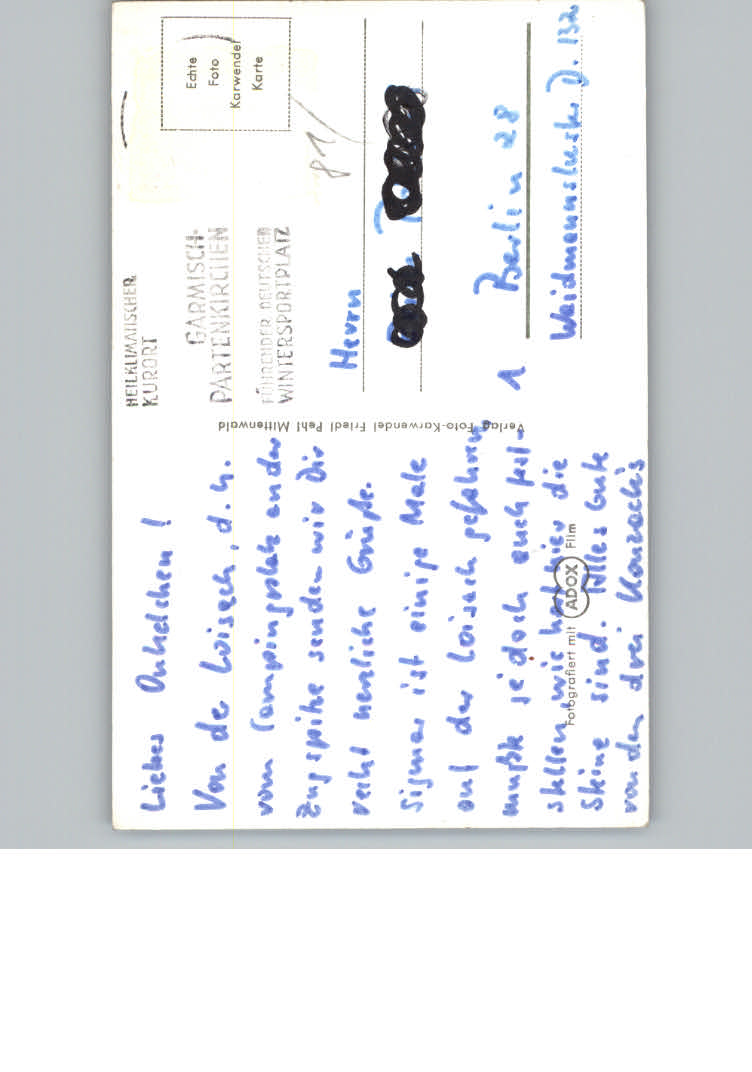 Liebes Onkelchen!
Von der Loisach, d.h.
vom Campingplatz an der
Zugspitze senden wir Dir
recht herzliche Grüße.
Sigmar ist einige Male
auf der Loisach gefahren,
mußte jedoch auch fest-
stellen, wie hart hier die
Steine sind. Alles Gute
von den drei
Fotografiert mit ADOX Film
Verlag Foto-Karwendel Friedl Pehl Mittenwald
HEILKLIMATISCHER
KURORT
GARMISCH-
PARTENKIRCHEN
FÜHRENDER DEUTSCHER
WINTERSPORTPLATZ
Echte
Foto
Karwendel
Karte
81/
Herrn
1 Berlin 28
Weidmannsluster D. 132